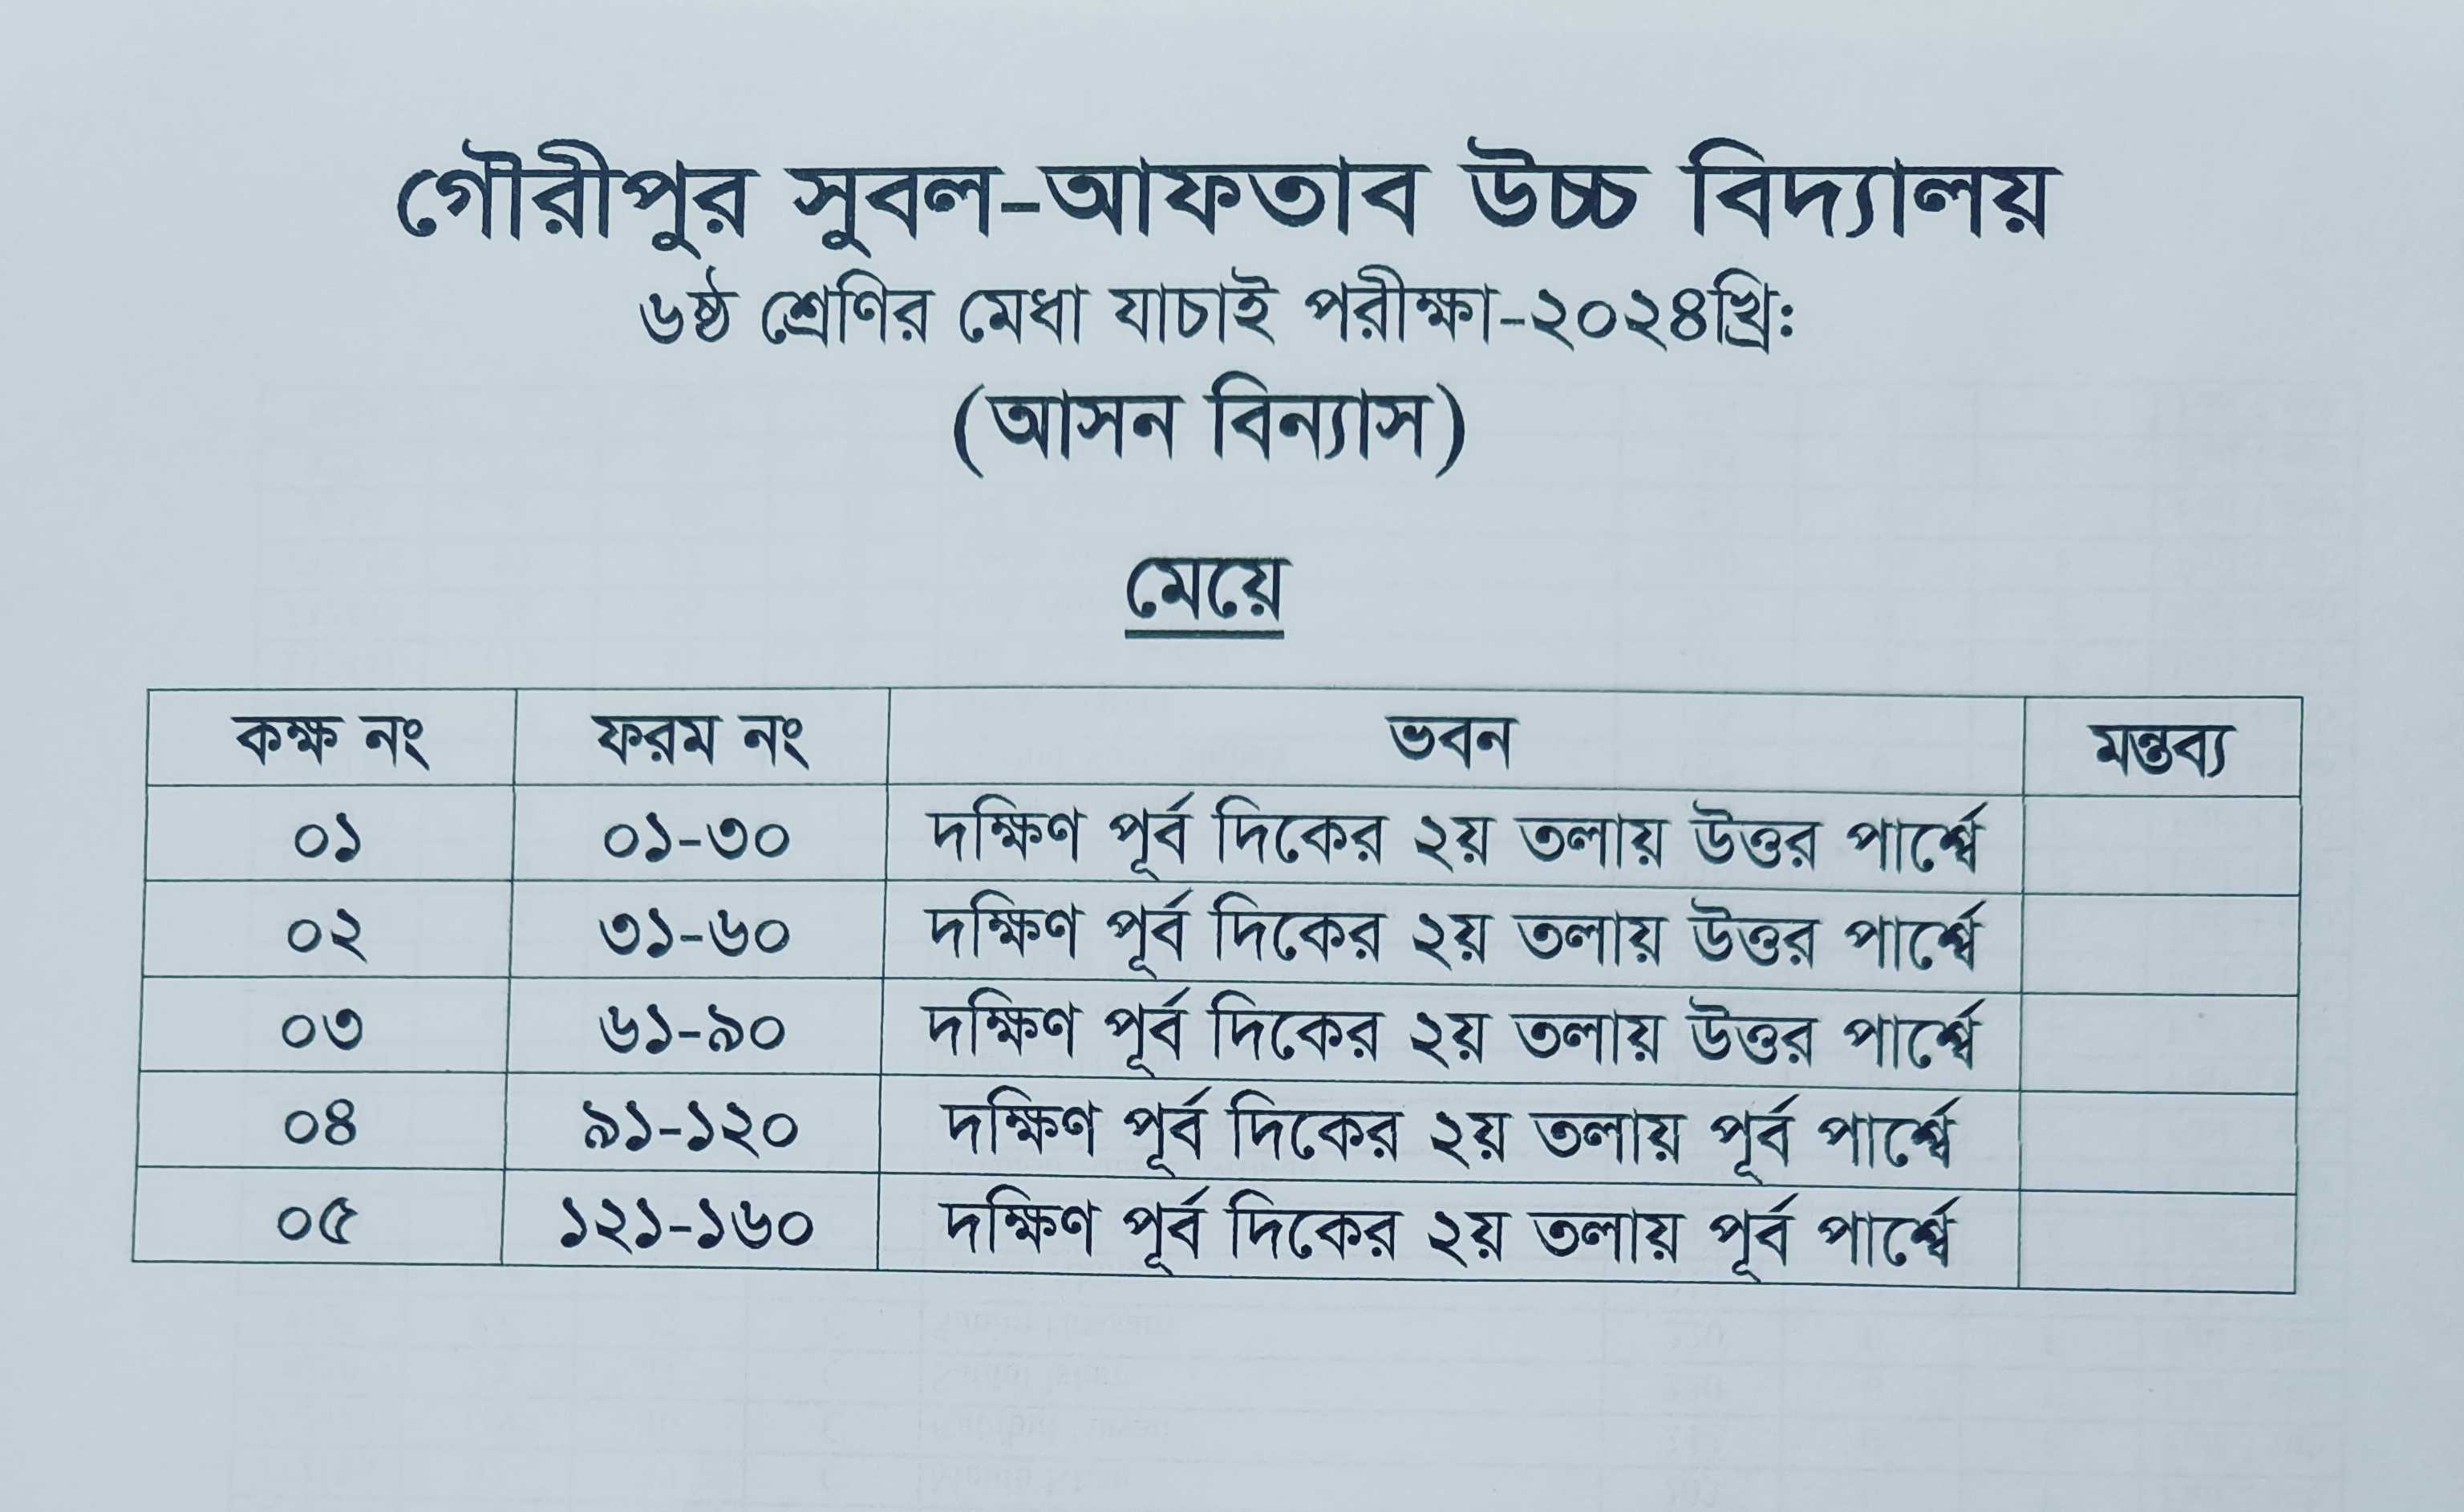 গৌরীপুর সুবল-আফতাব উচ্চ বিদ্যালয়
৬ষ্ঠ শ্রেণির মেধা যাচাই পরীক্ষা-২০২৪খ্রি:
(আসন বিন্যাস)
মেয়ে
কক্ষ নং ফরম নং ভবন মন্তব্য
০১ ০১-৩০ দক্ষিণ পূর্ব দিকের ২য় তলায় উত্তর পার্শ্বে
০২ ৩১-৬০ দক্ষিণ পূর্ব দিকের ২য় তলায় উত্তর পার্শ্বে
০৩ ৬১-৯০ দক্ষিণ পূর্ব দিকের ২য় তলায় উত্তর পার্শ্বে
০৪ ৯১-১২০ দক্ষিণ পূর্ব দিকের ২য় তলায় পূর্ব পার্শ্বে
০৫ ১২১-১৬০ দক্ষিণ পূর্ব দিকের ২য় তলায় পূর্ব পার্শ্বে